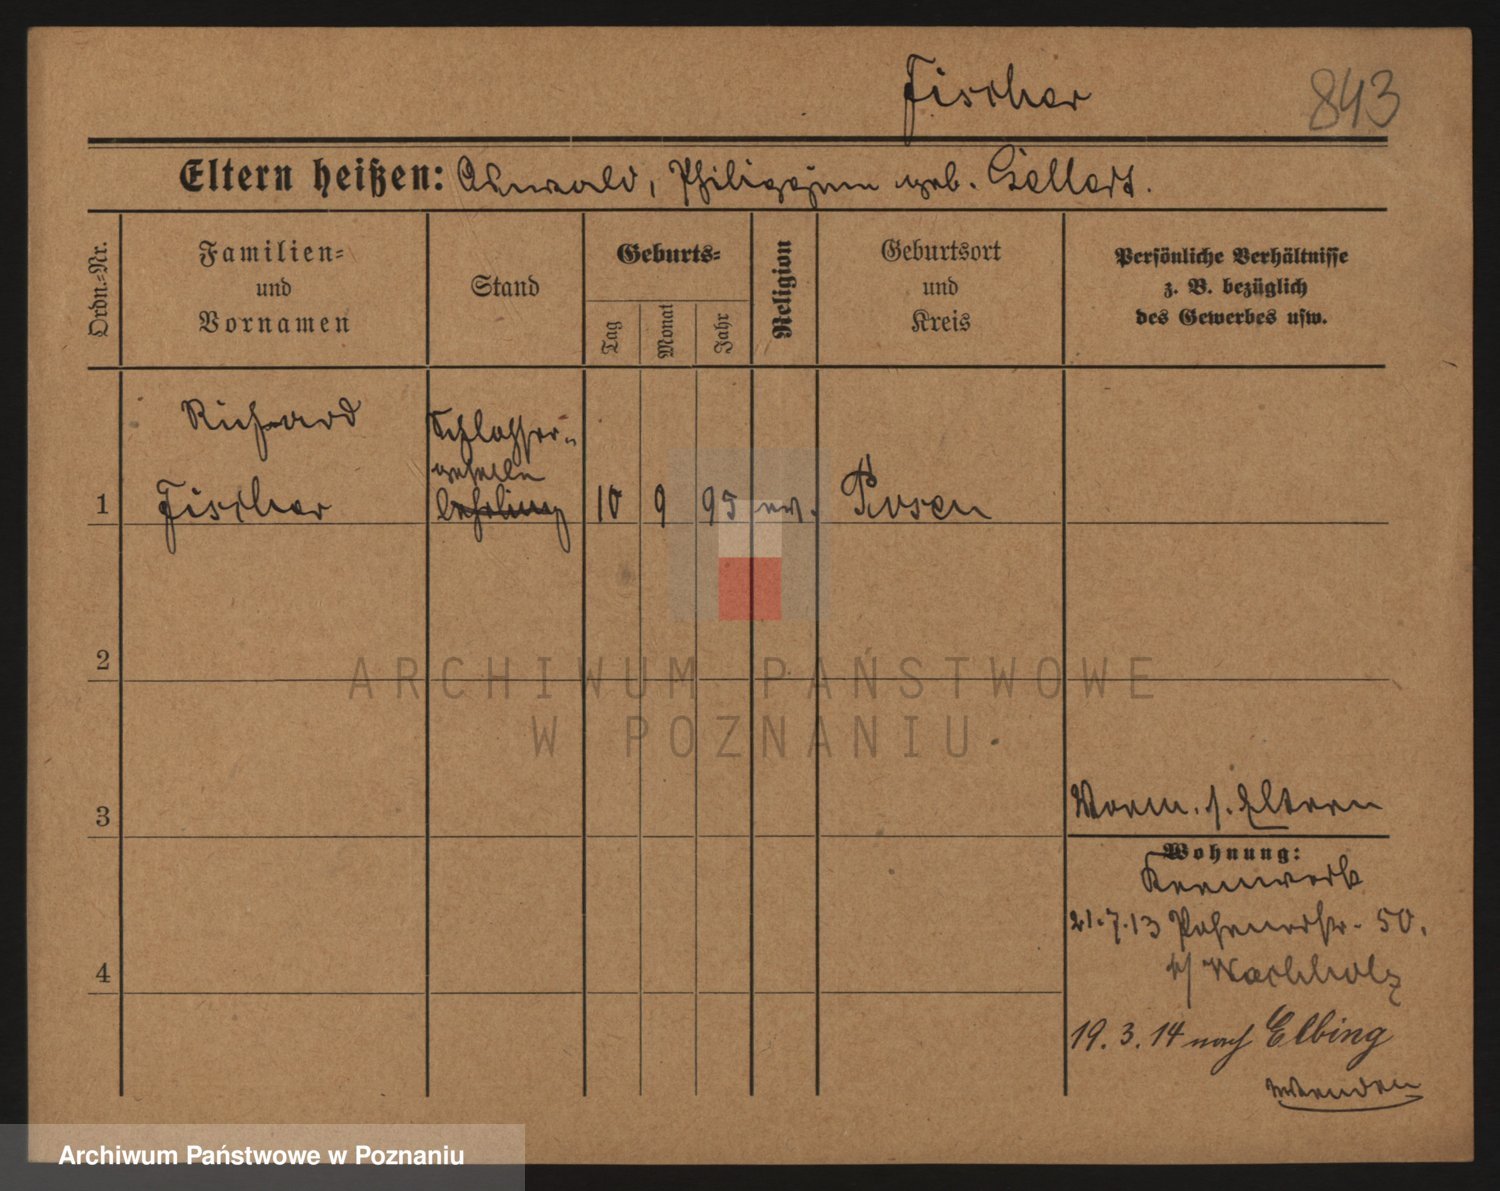 Fischer
843
Eltern heißen: geb. Gellert.
Ordn.-Nr.
Familien-
und
Vornamen
Stand
Geburts-
Tag
Monat
Jahr
Religion
Geburtsort
und
Kreis
Persönliche Verhältnisse
z. B. bezüglich
des Gewerbes usw.
Richard
Fischer
Schlosser-
geselle
Lehrling
1
10
9
95
ev.
Posen
2
3
4
Vorm. s. Eltern
Wohnung:
Kernwerk
21.7.13 Posenerstr. 50.
b/ Wachholz
19.3.14 nach Elbing
wenden
ARCHIWUM PAŃSTWOWE
W POZNANIU
Archiwum Państwowe w Poznaniu